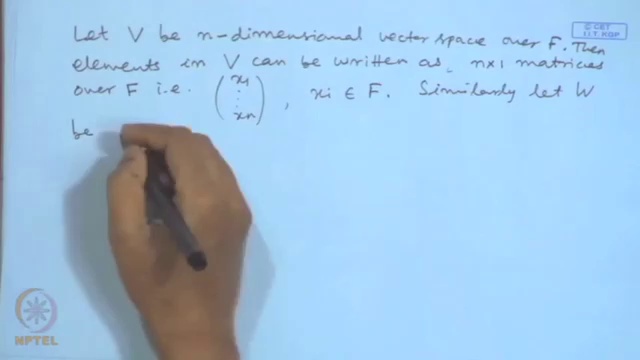 © CET
I.I.T. KGP
Let V be n-dimensional vector space over F. Then
elements in V can be written as, n×1 matrices
over F i.e. (x₁ ⋮ xₙ), xi ∈ F. Similarly let W
be
NPTEL